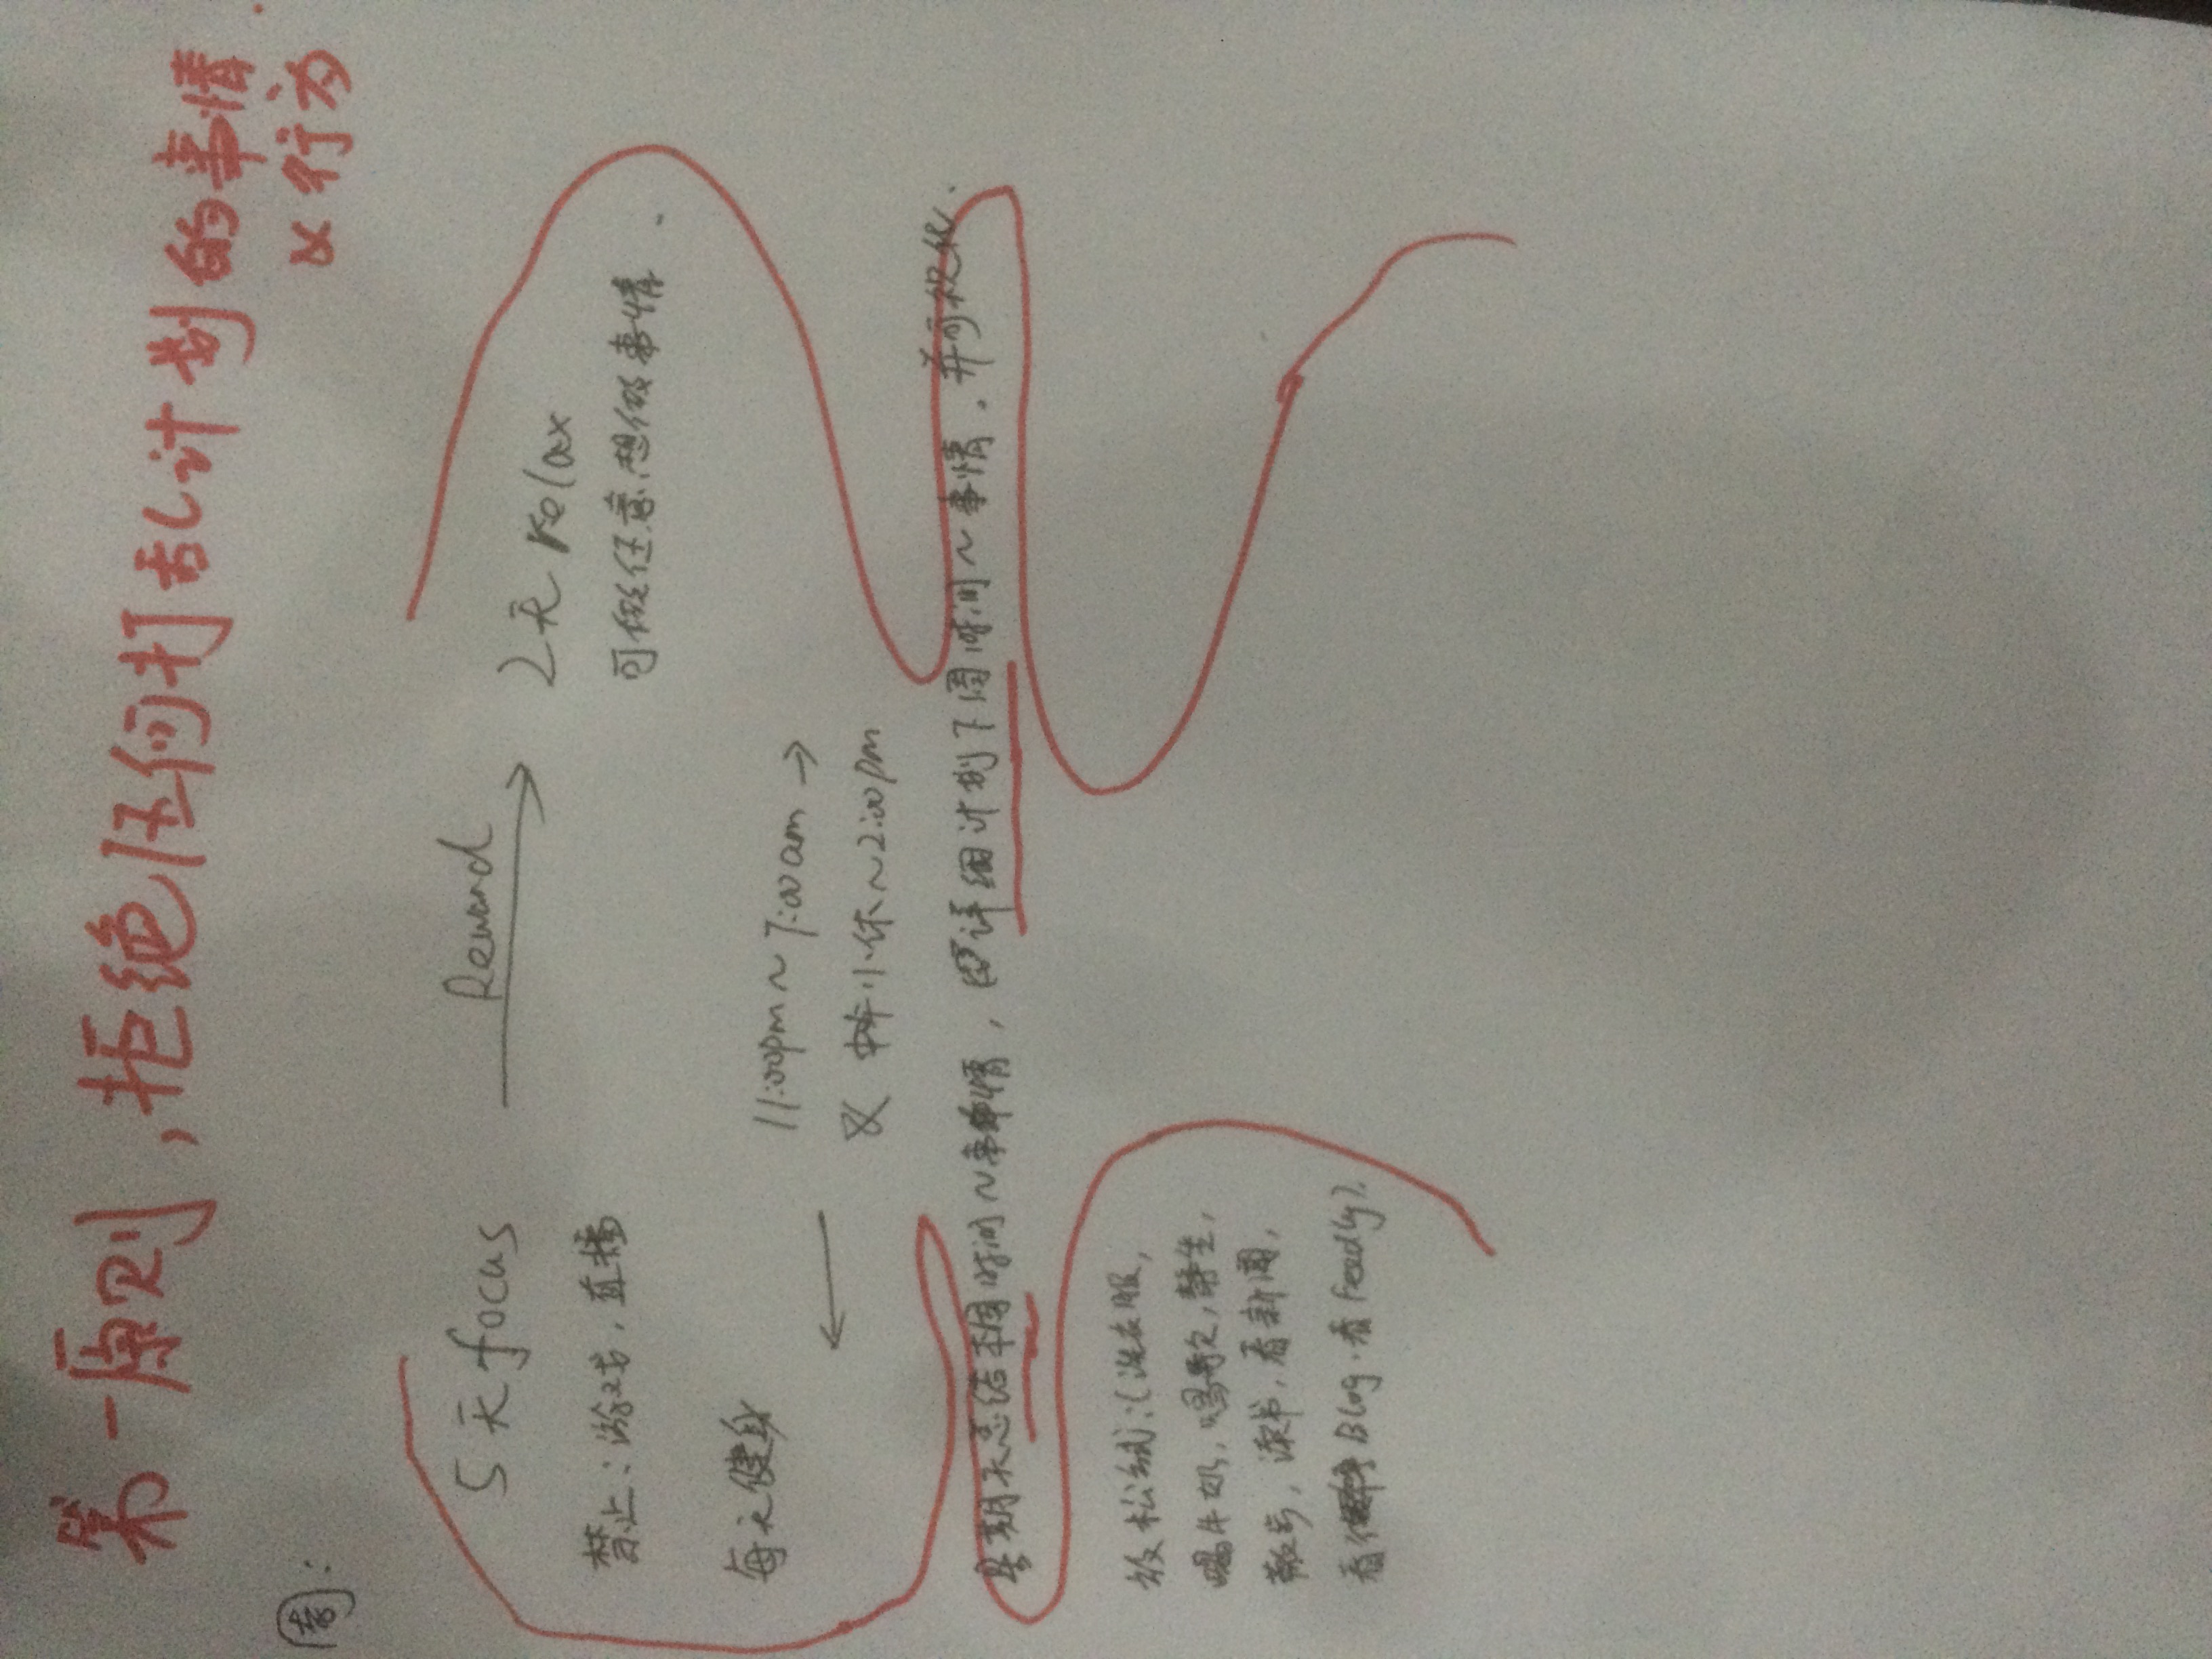 第一原则，拒绝任何打乱计划的事情.
& 行为
周：
5天focus
Reward
2天relax
禁止：游戏，直播
可做任意想做事情.
每天健身
11:00pm～7:00am →
& 中午小休～2:00pm
星期天总结本周时间～事情，详细计划下周时间～事情. 并可视化.
放松：(洗衣服,
喝牛奶, 唱歌, 静坐,
散步, 读书, 看新闻,
看 Blog. 看Feedly).